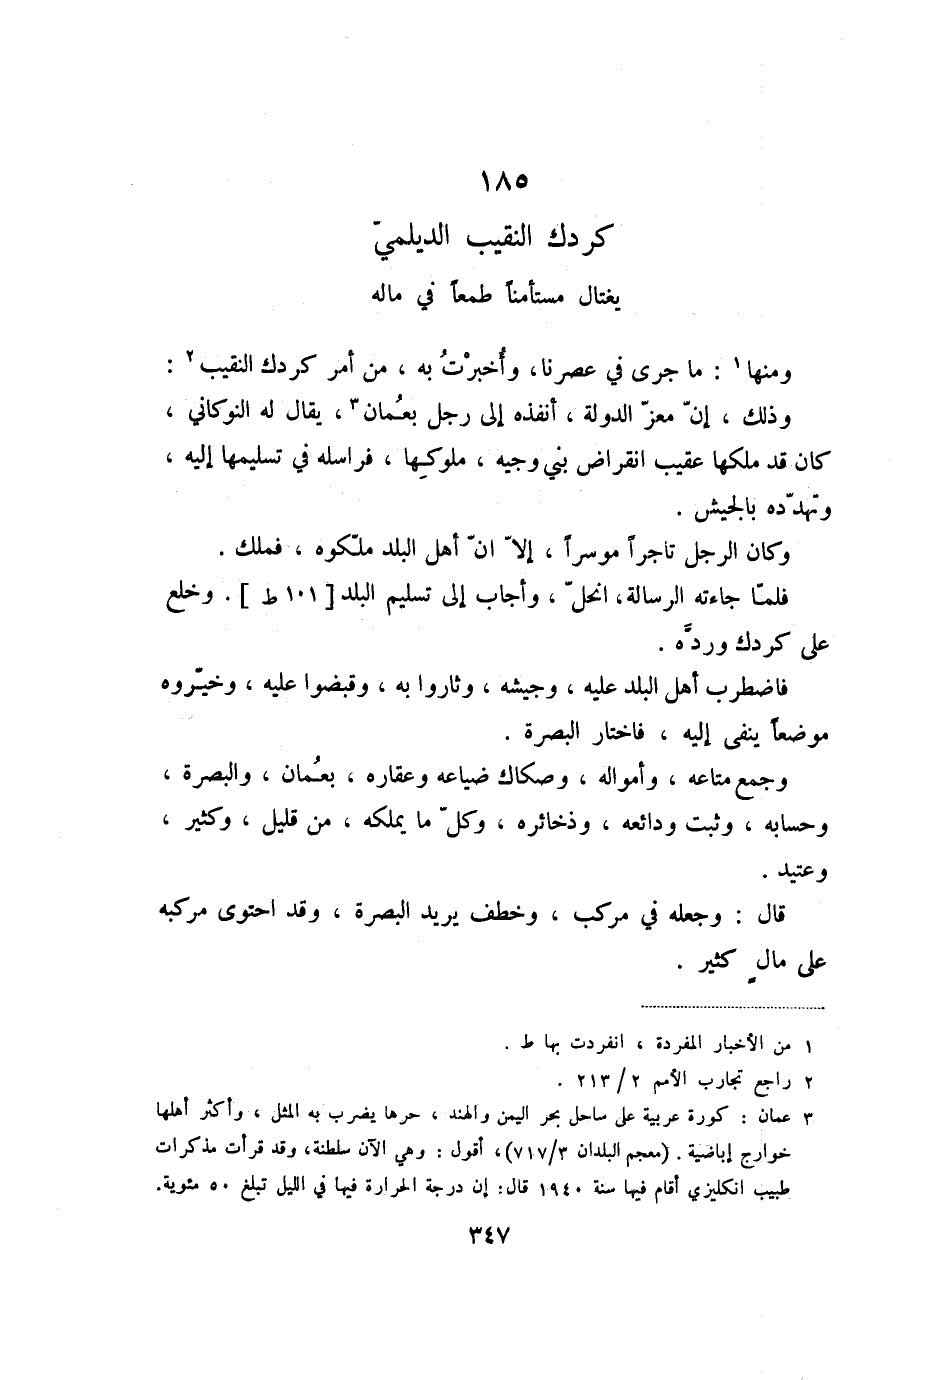 ١٨٥
كردك النقيب الديلميّ
يغتال مستأمناً طمعاً في ماله
ومنها١ : ما جرى في عصرنا، وأُخبرْتُ به ، من أمر كردك النقيب٢ :
وذلك ، إنّ معزّ الدولة ، أنفذه إلى رجل بعُمان٣، يقال له النوكاني ،
كان قد ملكها عقيب انقراض بني وجيه ، ملوكها ، فراسله في تسليمها إليه ،
وتهدّده بالجيش .
وكان الرجل تاجراً موسراً ، إلاّ انّ أهل البلد ملّكوه ، فملك .
فلمّا جاءته الرسالة، انحلّ ، وأجاب إلى تسليم البلد [ ١٠١ ط ] . وخلع
على كردك وردَّه .
فاضطرب أهل البلد عليه ، وجيشه ، وثاروا به ، وقبضوا عليه ، وخيّروه
موضعاً ينفى إليه ، فاختار البصرة .
وجمع متاعه ، وأمواله ، وصكاك ضياعه وعقاره ، بعُمان ، والبصرة ،
وحسابه ، وثبت ودائعه ، وذخائره ، وكلّ ما يملكه ، من قليل ، وكثير ،
وعتيد .
قال : وجعله في مركب ، وخطف يريد البصرة ، وقد احتوى مركبه
على مالٍ كثير .
١ من الأخبار المفردة ، انفردت بها ط .
٢ راجع تجارب الأمم ٢/ ٢١٣ .
٣ عمان : كورة عربية على ساحل بحر اليمن والهند ، حرها يضرب به المثل ، وأكثر أهلها
خوارج إباضية . (معجم البلدان ٧١٧/٣)، أقول : وهي الآن سلطنة، وقد قرأت مذكرات
طبيب انكليزي أقام فيها سنة ١٩٤٠ قال: إن درجة الحرارة فيها في الليل تبلغ ٥٠ مئوية.
٣٤٧